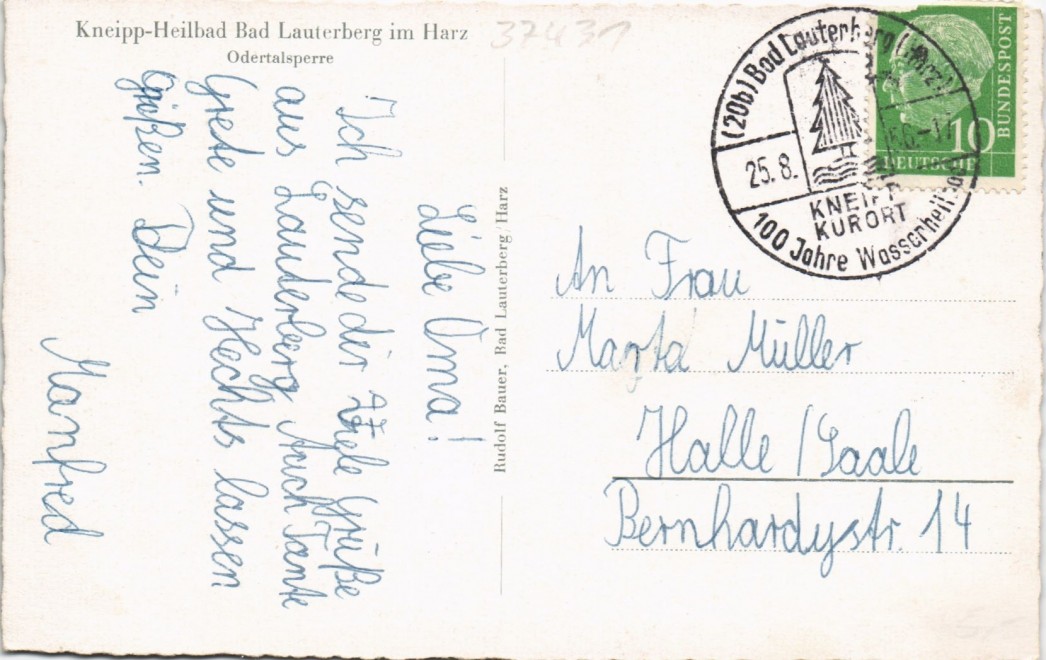 Kneipp-Heilbad Bad Lauterberg im Harz
Odertalsperre
37431
Liebe Oma!
Ich sende dir Viele Grüße
aus Lauterberg Auch Tante
Grete und Hechts lassen
grüßen. Dein
Manfred
Rudolf Bauer, Bad Lauterberg/Harz
(20b) Bad Lauterberg (Harz)
25.8. 56.-17
KNEIPP
KURORT
100 Jahre Wasserheilbad
10
DEUTSCHE
BUNDESPOST
An Frau
Marta Müller
Halle / Saale
Bernhardystr. 14